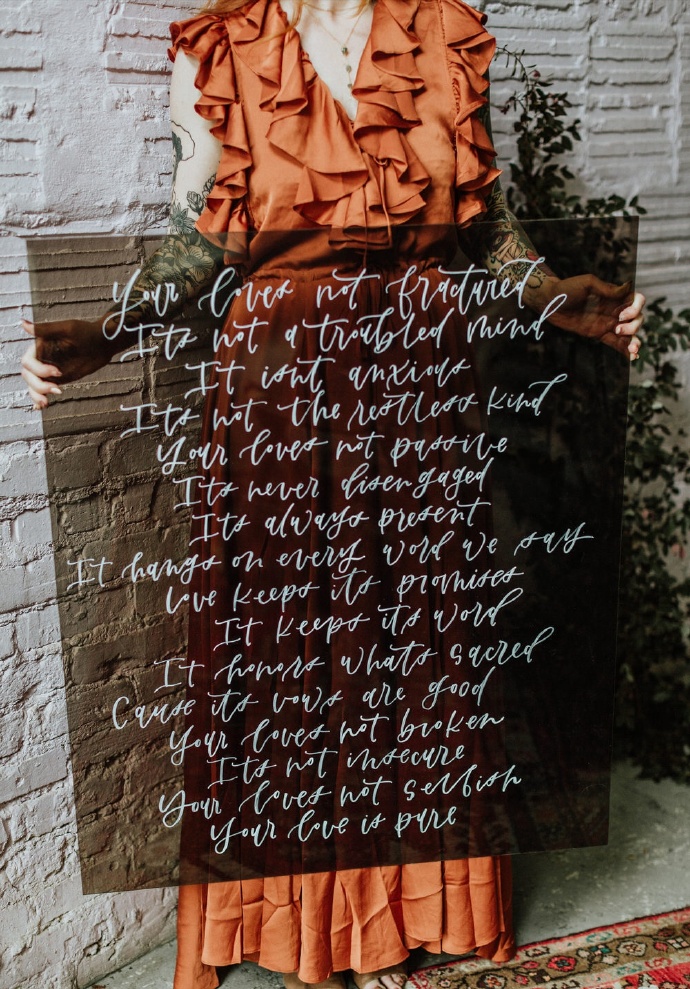 Your loves not fractured
Its not a troubled mind
It isnt anxious
Its not the restless kind
Your loves not passive
Its never disengaged
Its always present
It hangs on every word we say
Love keeps its promises
It keeps its word
It honors whats sacred
Cause its vows are good
Your loves not broken
Its not insecure
Your loves not selfish
Your love is pure